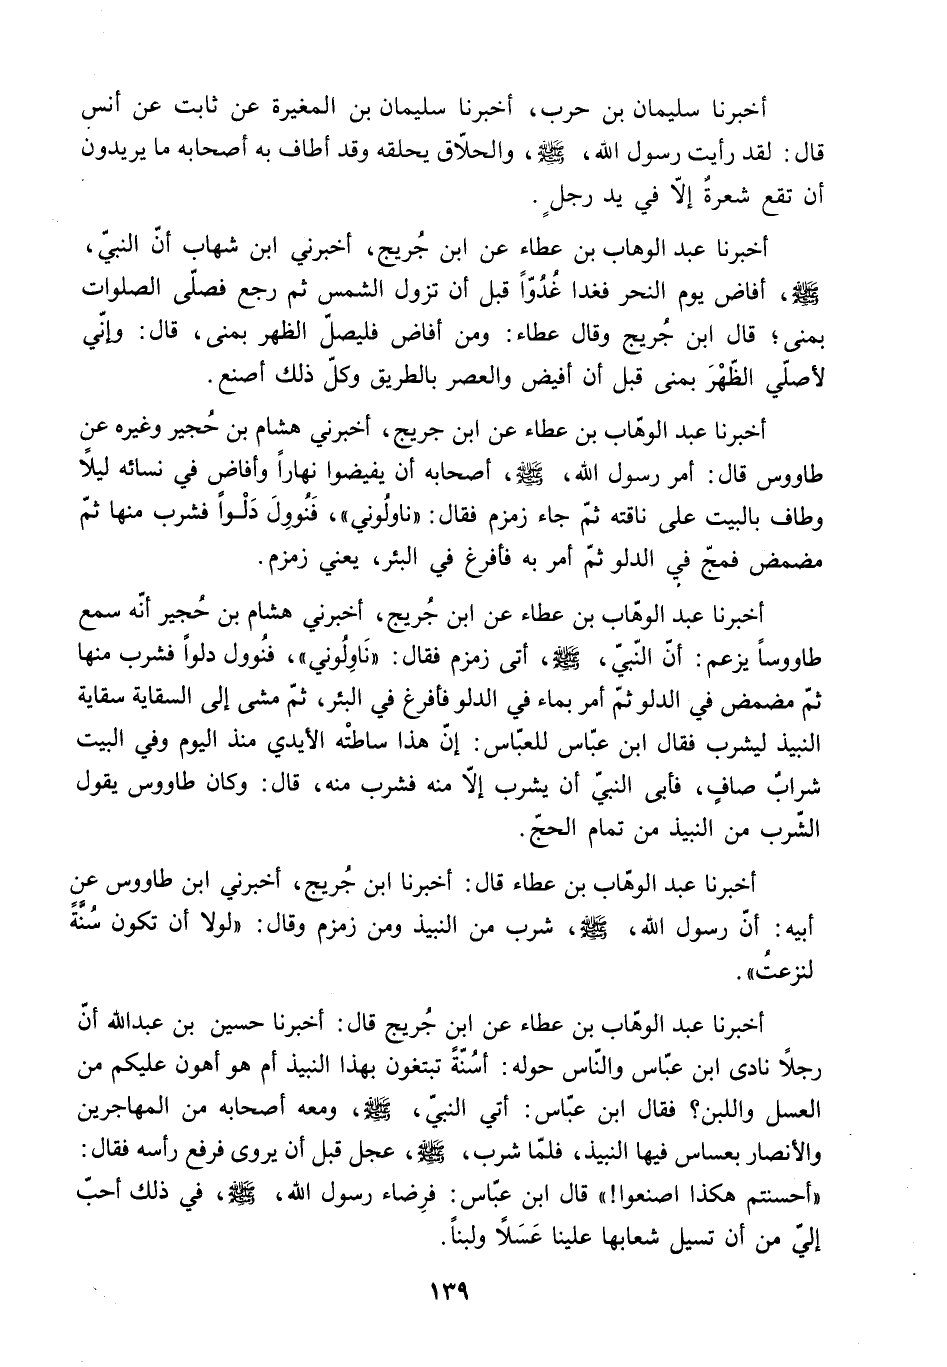 أخبرنا سليمان بن حرب، أخبرنا سليمان بن المغيرة عن ثابت عن أنس
قال: لقد رأيت رسول الله، ﷺ، والحلاّق يحلقه وقد أطاف به أصحابه ما يريدون
أن تقع شعرةٌ إلاّ في يد رجلٍ.
أخبرنا عبد الوهاب بن عطاء عن ابن جُريج، أخبرني ابن شهاب أنّ النبيّ،
ﷺ، أفاض يوم النحر فغدا غُدُوّاً قبل أن تزول الشمس ثم رجع فصلّى الصلوات
بمنى؛ قال ابن جُريج وقال عطاء: ومن أفاض فليصلّ الظهر بمنى، قال: وإنّي
لأصلّي الظّهْرَ بمنى قبل أن أفيض والعصر بالطريق وكلّ ذلك أصنع.
أخبرنا عبد الوهّاب بن عطاء عن ابن جريج، أخبرني هشام بن حُجير وغيره عن
طاووس قال: أمر رسول الله، ﷺ، أصحابه أن يفيضوا نهاراً وأفاض في نسائه ليلاً
وطاف بالبيت على ناقته ثمّ جاء زمزم فقال: «ناولُوني»، فَنُووِلَ دَلْواً فشرب منها ثمّ
مضمض فمجّ في الدلو ثمّ أمر به فأفرغ في البئر، يعني زمزم.
أخبرنا عبد الوهّاب بن عطاء عن ابن جُريج، أخبرني هشام بن حُجير أنّه سمع
طاووساً يزعم: أنّ النّبيّ، ﷺ، أتى زمزم فقال: «نَاوِلُوني»، فنُوول دلواً فشرب منها
ثمّ مضمض في الدلو ثمّ أمر بماء في الدلو فأفرغ في البئر، ثمّ مشى إلى السقاية سقاية
النبيذ ليشرب فقال ابن عبّاس للعبّاس: إنّ هذا ساطتْه الأيدي منذ اليوم وفي البيت
شرابٌ صافٍ، فأبى النبيّ أن يشرب إلاّ منه فشرب منه، قال: وكان طاووس يقول
الشّرب من النبيذ من تمام الحجّ.
أخبرنا عبد الوهّاب بن عطاء قال: أخبرنا ابن جُريج، أخبرني ابن طاووس عن
أبيه: أنّ رسول الله، ﷺ، شرب من النبيذ ومن زمزم وقال: «لولا أن تكون سُنَّةً
لنزعتُ».
أخبرنا عبد الوهّاب بن عطاء عن ابن جُريج قال: أخبرنا حسين بن عبدالله أنّ
رجلاً نادى ابن عبّاس والنّاس حوله: أسُنّةً تبتغون بهذا النبيذ أم هو أهون عليكم من
العسل واللبن؟ فقال ابن عبّاس: أتي النبيّ، ﷺ، ومعه أصحابه من المهاجرين
والأنصار بعساس فيها النبيذ، فلمّا شرب، ﷺ، عجل قبل أن يروى فرفع رأسه فقال:
«أحسنتم هكذا اصنعوا!» قال ابن عبّاس: فرِضاء رسول الله، ﷺ، في ذلك أحبّ
إليّ من أن تسيل شعابها علينا عَسَلاً ولبناً.
١٣٩